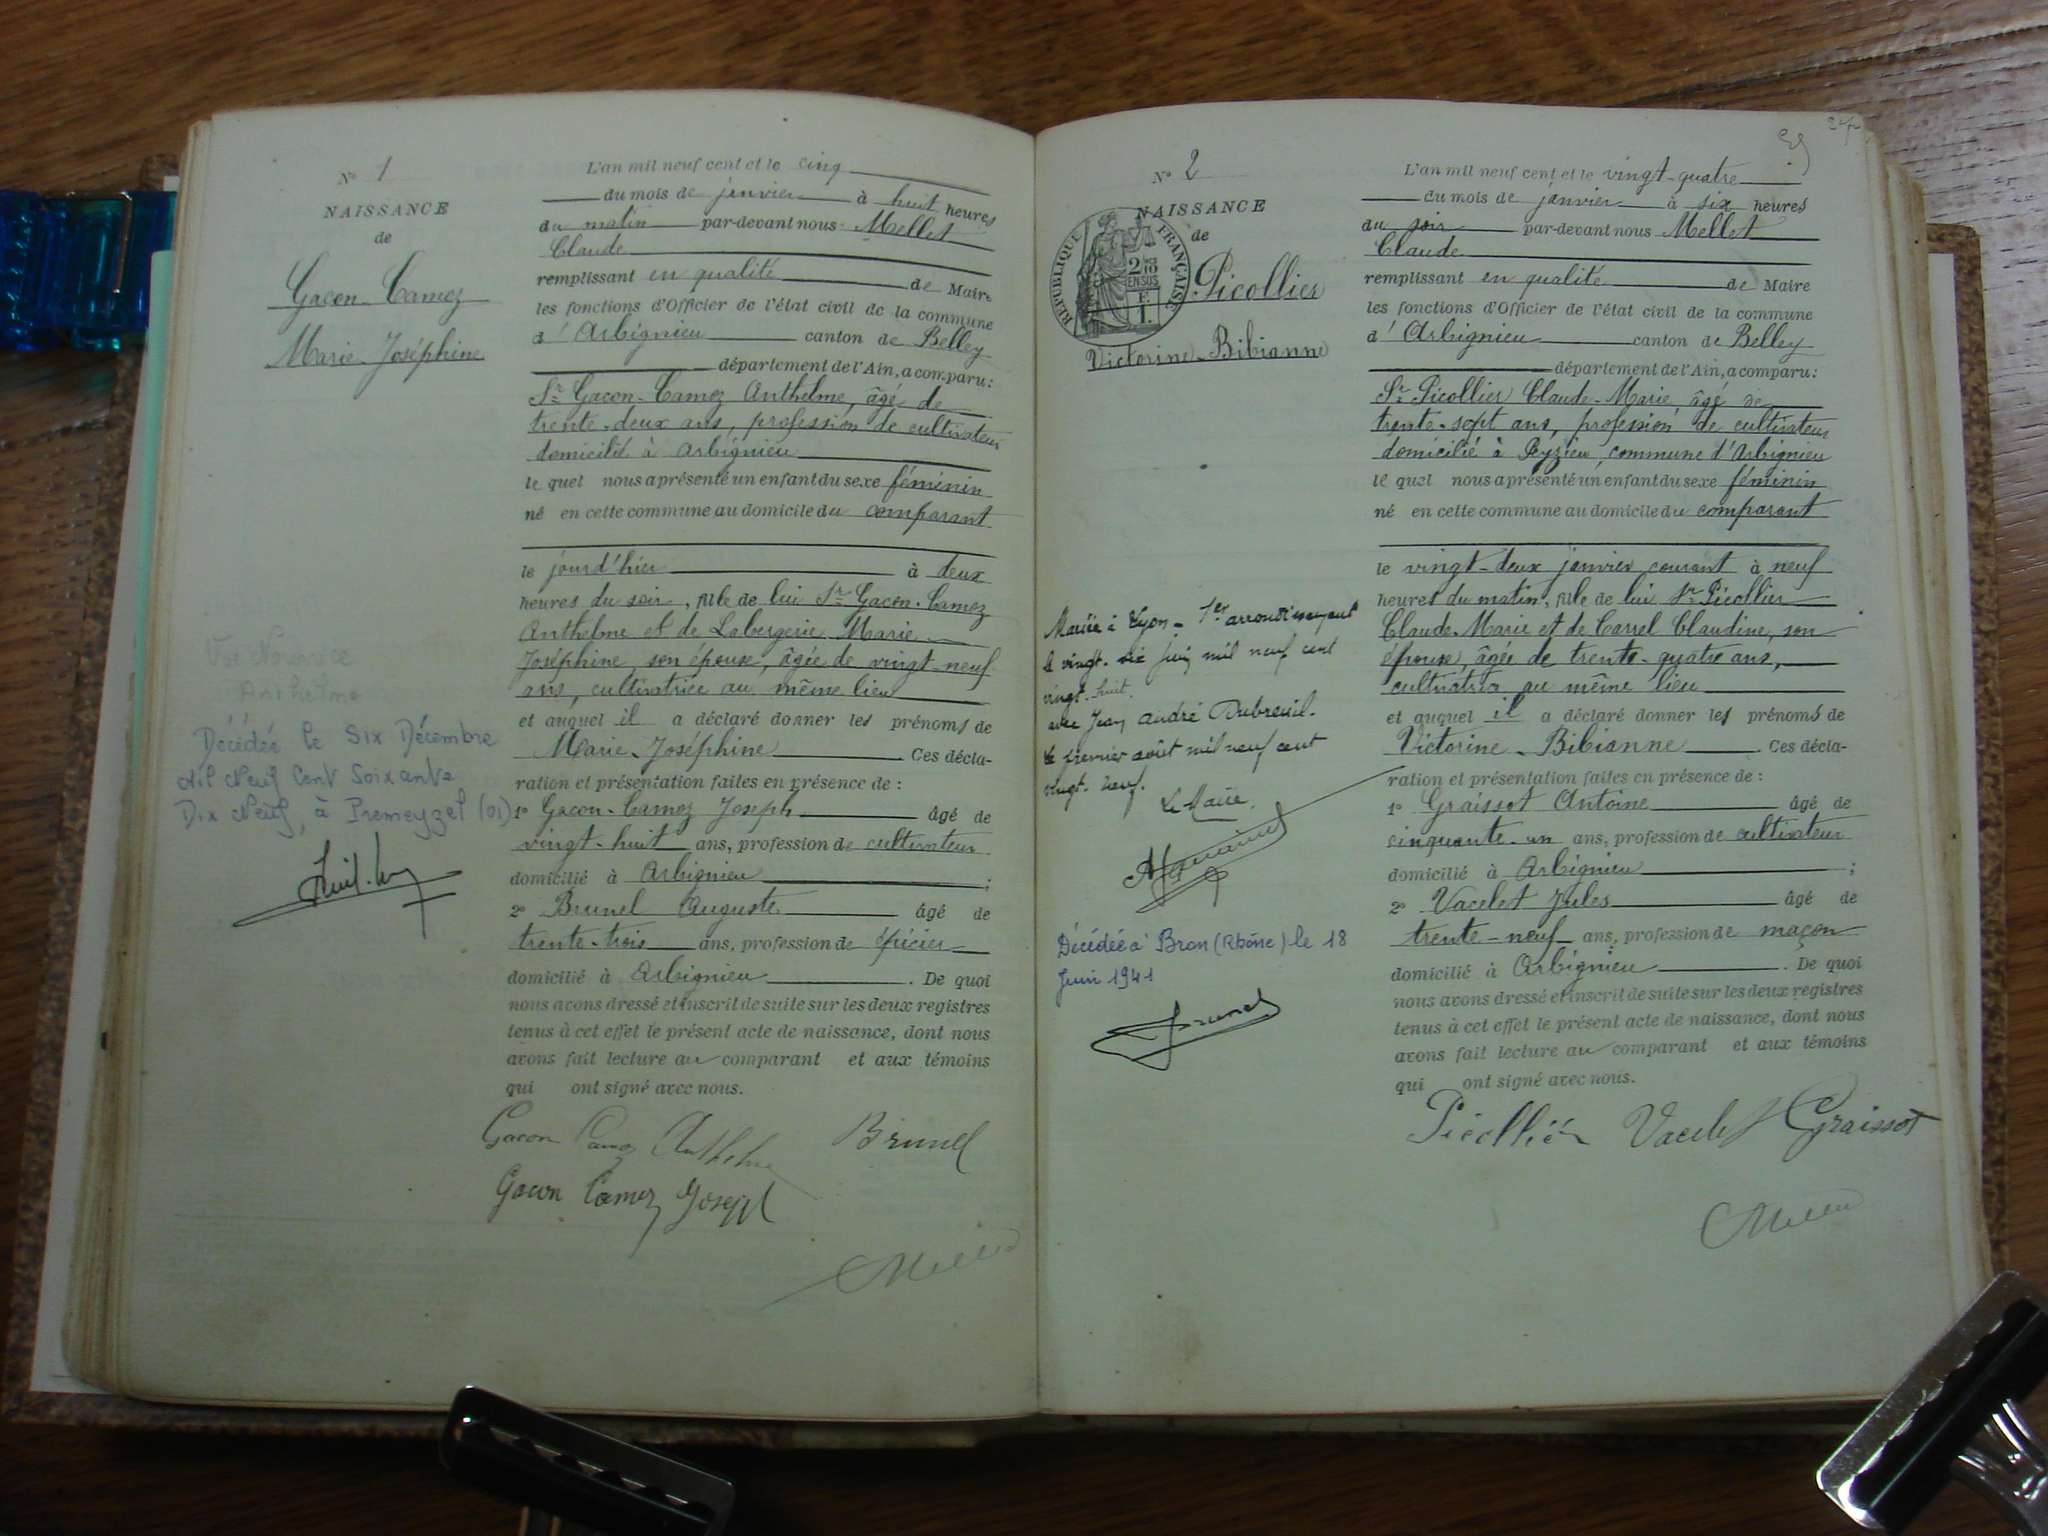 N° 1
NAISSANCE
de
Gacon-Camoz
Marie-Joséphine
Vve
Anthelme
Décédée le Six Décembre
Mil Neuf Cent Soixante
Dix Neuf, à Premeyzel (01)
L'an mil neuf cent et le cinq
du mois de janvier à huit heures
du matin par-devant nous Mellet
Claude
remplissant en qualité de Maire
les fonctions d'Officier de l'état civil de la commune
d'Arbignieu canton de Belley
département de l'Ain, a comparu:
Sr Gacon-Camoz Anthelme, âgé de
trente-deux ans, profession de cultivateur
domicilié à Arbignieu
le quel nous a présenté un enfant du sexe féminin
né en cette commune au domicile du comparant
le jour d'hier à deux
heures du soir, fille de lui Sr Gacon-Camoz
Anthelme et de Labergerie Marie
Joséphine, son épouse, âgée de vingt-neuf
ans, cultivatrice au même lieu
et auquel il a déclaré donner les prénoms de
Marie-Joséphine. Ces décla-
ration et présentation faites en présence de:
1° Gacon-Camoz Joseph âgé de
vingt-huit ans, profession de cultivateur
domicilié à Arbignieu;
2° Brunel Auguste âgé de
trente-trois ans, profession de épicier
domicilié à Arbignieu. De quoi
nous avons dressé et inscrit de suite sur les deux registres
tenus à cet effet le présent acte de naissance, dont nous
avons fait lecture au comparant et aux témoins
qui ont signé avec nous.
Gacon Camoz Anthelme Brunel
Gacon Camoz Joseph
CMellet
N° 2
NAISSANCE
de
RÉPUBLIQUE FRANÇAISE
2/10
EN SUS
Picollier
Victorine-Bibianne
Mariée à Lyon - 1er arrondissement
le vingt-six juin mil neuf cent
vingt-huit.
avec Jean André Dubreuil.
Le premier août mil neuf cent
vingt-neuf.
Le Maire.
Décédée à Bron (Rhône) le 18
Juin 1941
Brunel
L'an mil neuf cent et le vingt-quatre
du mois de janvier à six heures
du soir par-devant nous Mellet
Claude
remplissant en qualité de Maire
les fonctions d'Officier de l'état civil de la commune
d'Arbignieu canton de Belley
département de l'Ain, a comparu:
Sr Picollier Claude-Marie, âgé de
trente-sept ans, profession de cultivateur
domicilié à Peyzieu, commune d'Arbignieu
le quel nous a présenté un enfant du sexe féminin
né en cette commune au domicile du comparant
le vingt-deux janvier courant à neuf
heures du matin, fille de lui Sr Picollier
Claude-Marie et de Carrel Claudine, son
épouse, âgée de trente-quatre ans,
cultivatrice au même lieu
et auquel il a déclaré donner les prénoms de
Victorine-Bibianne. Ces décla-
ration et présentation faites en présence de:
1° Graissot Antoine âgé de
cinquante-un ans, profession de cultivateur
domicilié à Arbignieu;
2° Vacelet Jules âgé de
trente-neuf ans, profession de maçon
domicilié à Arbignieu. De quoi
nous avons dressé et inscrit de suite sur les deux registres
tenus à cet effet le présent acte de naissance, dont nous
avons fait lecture au comparant et aux témoins
qui ont signé avec nous.
Picollier Vacelet Graissot
CMellet